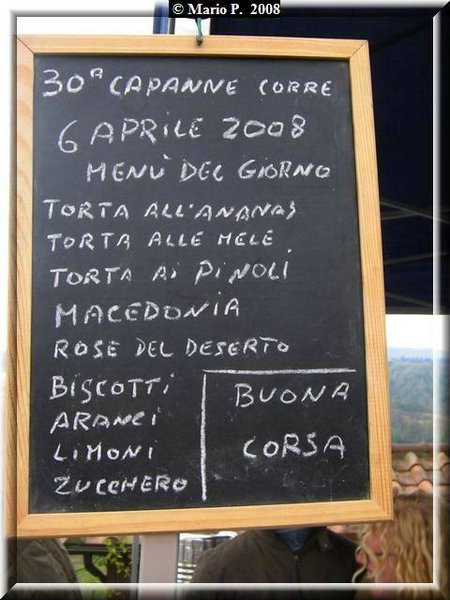 © Mario P. 2008
30ª CAPANNE CORRE
6 APRILE 2008
MENÙ DEL GIORNO
TORTA ALL'ANANAS
TORTA ALLE MELE
TORTA AI PINOLI
MACEDONIA
ROSE DEL DESERTO
BISCOTTI
ARANCI
LIMONI
ZUCCHERO
BUONA
CORSA